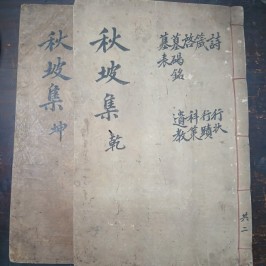 詩
箴
啓
墓碣銘
墓表
行狀
行蹟
科業
遺教
共二
秋坡集 乾
秋坡集 坤